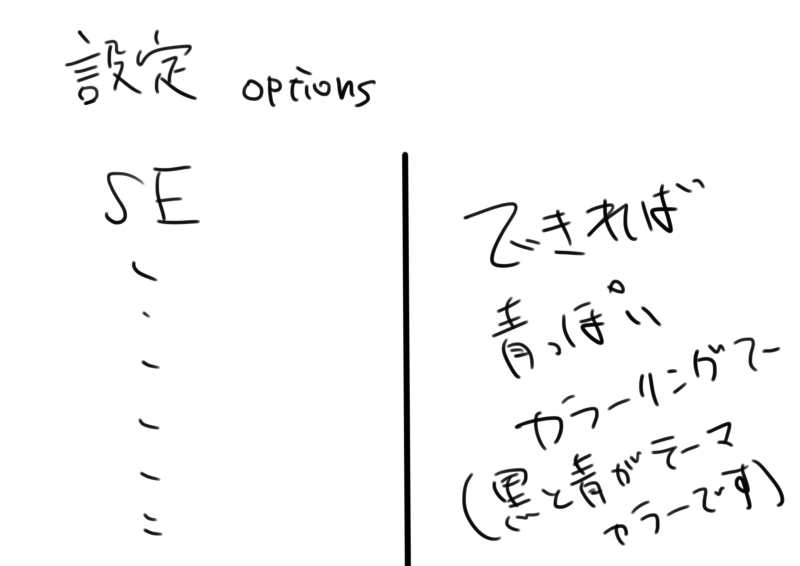 設定 options
SE
できれば
青っぽい
カラーリングで
(黒と青がテーマ
カラーです)